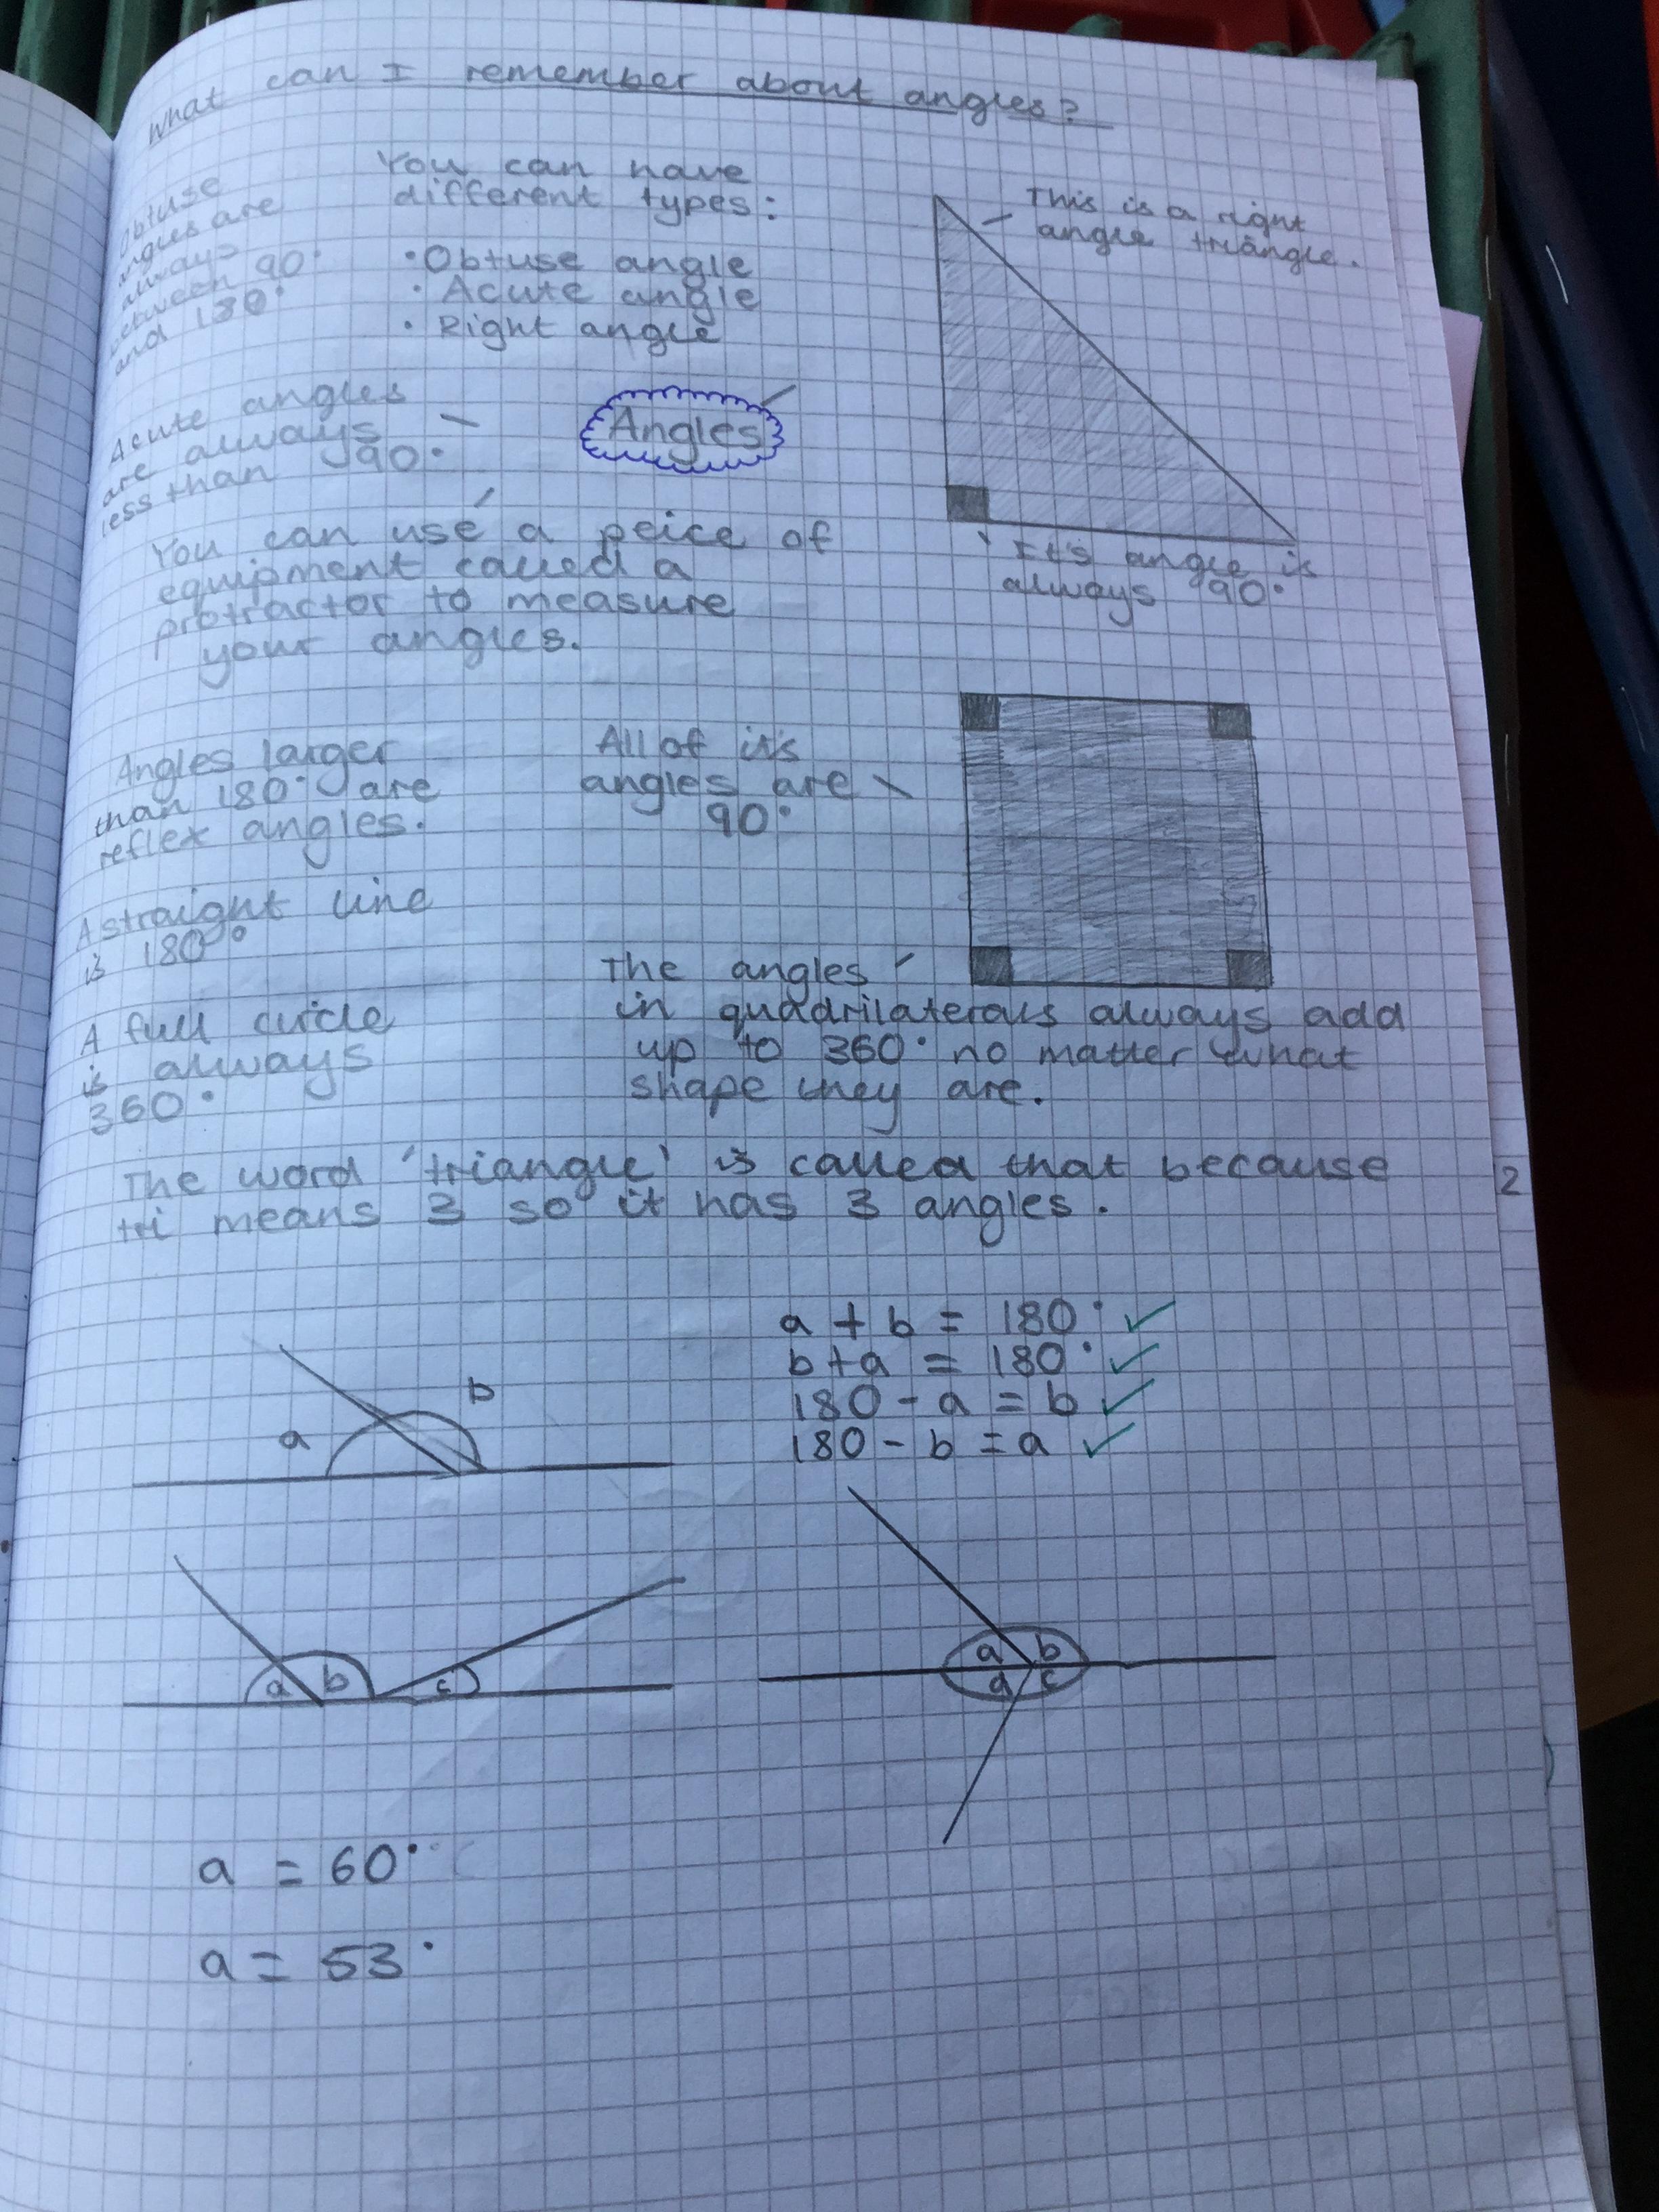 What can I remember about angles?
Obtuse
angles are
always
between 90°
and 180°
You can have
different types:
• Obtuse angle
• Acute angle
• Right angle
This is a right
angle triangle.
Acute angles
are always
less than 90°
Angles
You can use a peice of
equipment called a
protractor to measure
your angles.
It's angle is
always 90°
Angles larger
than 180° are
reflex angles.
All of it's
angles are
90°
A straight line
is 180°
A full circle
is always
360°
The angles
in quadrilaterals always add
up to 360° no matter what
shape they are.
The word 'triangle' is called that because
tri means 3 so it has 3 angles.
2
a + b = 180°
b + a = 180°
180 - a = b
180 - b = a
a
b
a b c
a b
d c
a = 60°
a = 53°